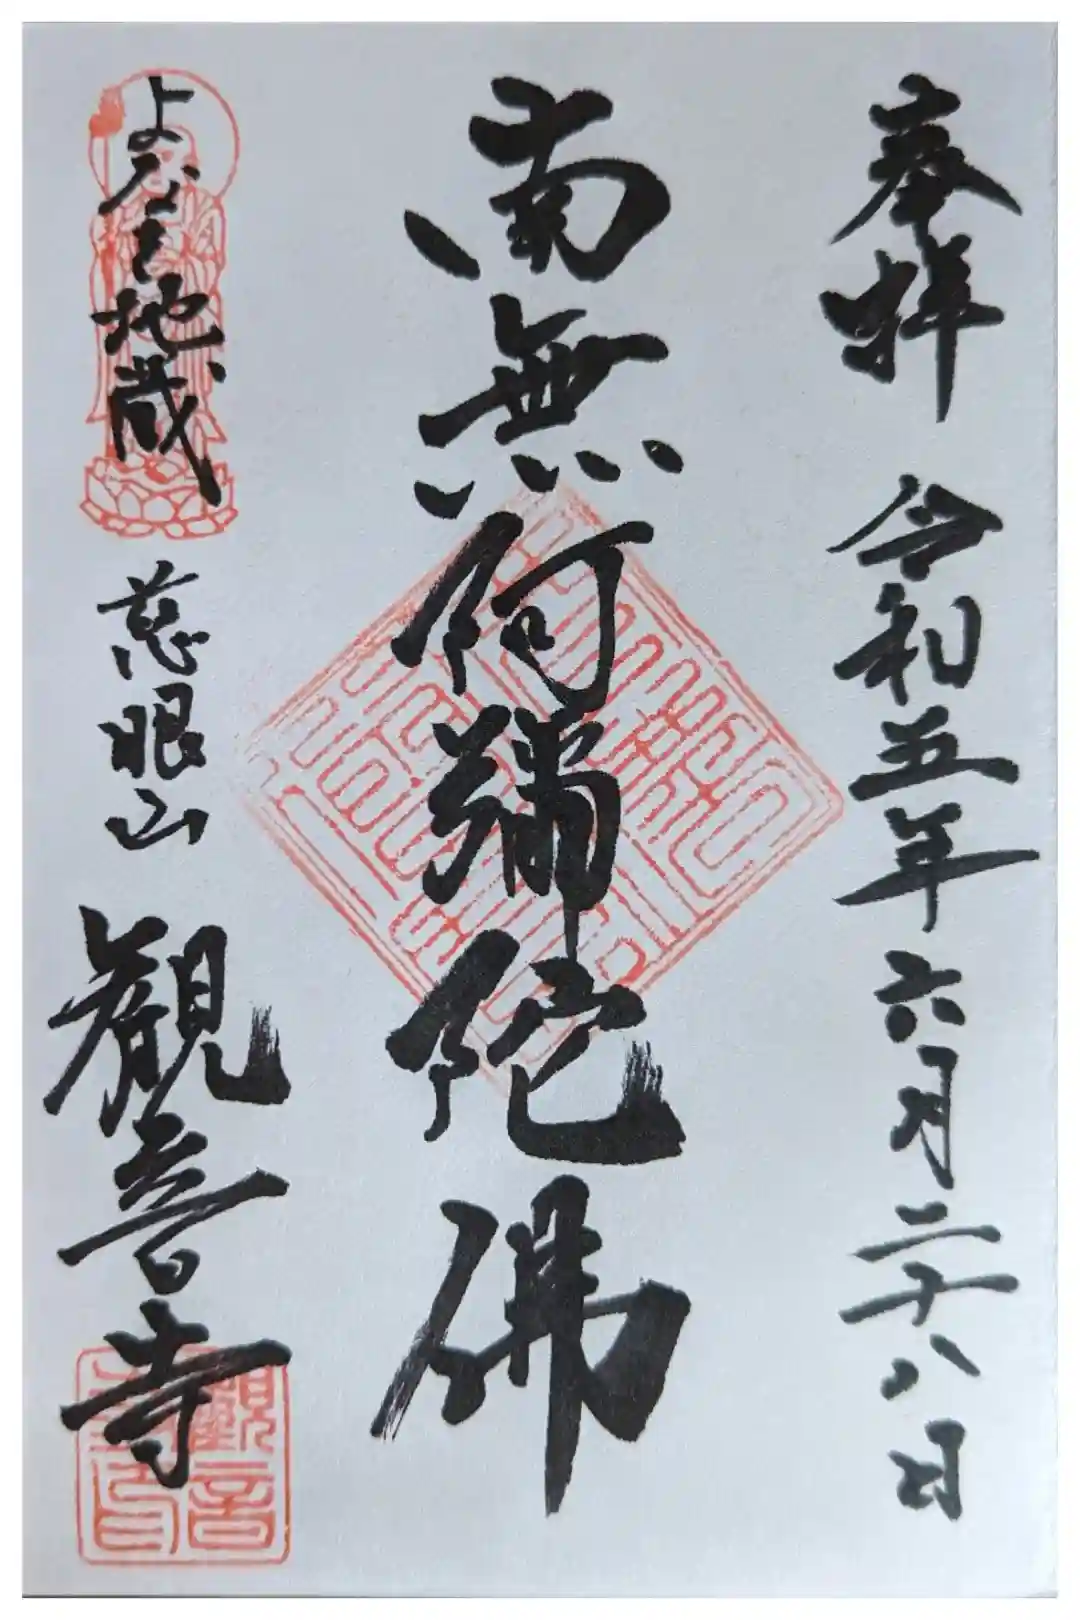 奉拝 令和五年六月二十八日
南無阿彌陀佛
地蔵
慈眼山 觀音寺
觀音寺印